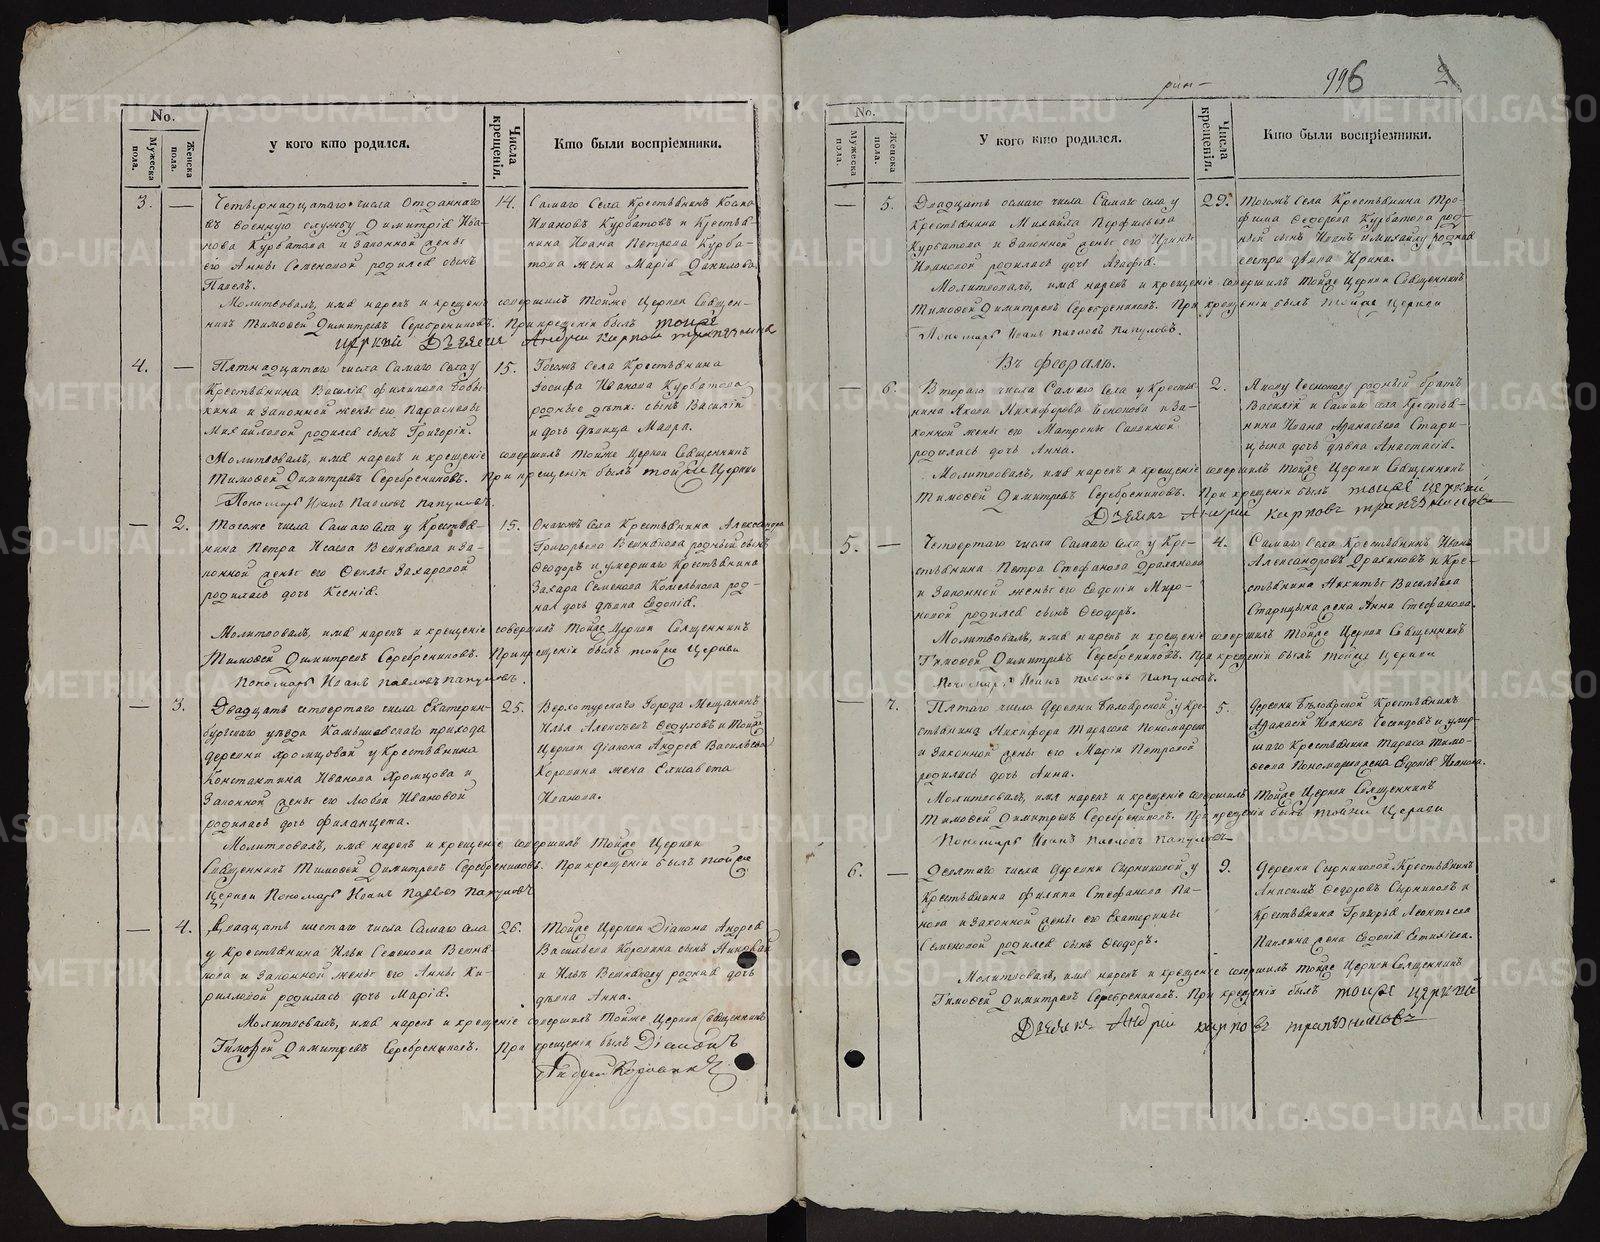 No.
Мужеска пола.
Женска пола.
У кого кто родился.
Числа крещенія.
Кто были воспріемники.
3. — Четырнадцатаго числа отданнаго
въ военную службу Димитрія Ива-
нова Курбатова и законной жены
его Анны Семеновой родился сынъ
Павелъ.
14. Самаго села крестьянинъ Косма
Ивановъ Курбатовъ и крестья-
нина Ивана Петрова Курба-
това жена Марія Данилова
Молитвовалъ, имя нарекъ и крещеніе совершилъ тойже церкви священ-
никъ Тимофей Димитревъ Серебрениковъ. При крещеніи былъ тойже
церкви Дьячекъ Андрей Карповъ
4. — Пятнадцатаго числа самаго села у
крестьянина Василія Филипова
и законной жены его Параскевы
Михайловой родился сынъ Григорій.
15. Тогожъ села крестьянина
Іосифа Иванова Курбатова
родные дѣти: сынъ Василій
и дочь дѣвица Мавра.
Молитвовалъ, имя нарекъ и крещеніе совершилъ тойже церкви священникъ
Тимофей Димитревъ Серебрениковъ. При крещеніи былъ тойже церкви
Пономарь Иванъ Павловъ Папуловъ.
— 2. Тогоже числа самаго села у крестья-
нина Петра Исаева и за-
конной жены его Феклы Захаровой
родилась дочь Ксенія.
15. Онагожъ села крестьянина Александра
Григорьева родный сынъ
Феодоръ и умершаго крестьянина
Захара Семенова род-
ная дочь дѣвица Евдокія.
Молитвовалъ, имя нарекъ и крещеніе совершилъ тойже церкви священникъ
Тимофей Димитревъ Серебрениковъ. При крещеніи былъ тойже церкви
Пономарь Иванъ Павловъ Папуловъ.
— 3. Двадцать четвертаго числа Екатерин-
бургскаго уѣзда Камышевскаго прихода
деревни Хромцовой у крестьянина
Константина Иванова Хромцова и
законной жены его Любви Ивановой
родилась дочь Филанцета.
25. Верхотурскаго города мещанинъ
Илья Алексѣевъ Федуловъ и тойже
церкви діакона Андрея Васильева
Коровина жена Елисавета
Иванова.
Молитвовалъ, имя нарекъ и крещеніе совершилъ тойже церкви
священникъ Тимофей Димитревъ Серебрениковъ. При крещеніи былъ тойже
церкви Пономарь Иванъ Павловъ Папуловъ
— 4. Двадцать шестаго числа самаго села
у крестьянина Ильи Семенова
и законной жены его Анны Ки-
риловой родилась дочь Марія.
26. Тойже церкви Діакона Андрея
Васильева Коровина сынъ
и Ильи родная дочь
дѣвица Анна.
Молитвовалъ, имя нарекъ и крещеніе совершилъ тойже церкви священникъ
Тимофей Димитревъ Серебрениковъ. При крещеніи былъ Діаконъ
Андрей Коровинъ
996
No.
Мужеска пола.
Женска пола.
У кого кто родился.
Числа крещенія.
Кто были воспріемники.
— 5. Двадцать осмаго числа самаго села у
крестьянина Михайла Перфильева
Курбатова и законной жены его Ирины
Ивановой родилась дочь Агафія.
29. Тогожъ села крестьянина Тро-
фима Федорова Курбатова род-
ный сынъ Иванъ и Михайлу родная
сестра дѣвица Ирина.
Молитвовалъ, имя нарекъ и крещеніе совершилъ тойже церкви священникъ
Тимофей Димитревъ Серебрениковъ. При крещеніи былъ тойже церкви
Пономарь Иванъ Павловъ Папуловъ.
Въ Февралѣ.
— 6. Втораго числа самаго села у крестья-
нина Якова Никифорова Чеснокова и за-
конной жены его Матроны Савиной
родилась дочь Анна.
2. Якову Чеснокову родный братъ
Василій и самаго села крестья-
нина Ивана Афанасьева Стари-
цына дочь дѣвица Анастасія.
Молитвовалъ, имя нарекъ и крещеніе совершилъ тойже церкви священникъ
Тимофей Димитревъ Серебрениковъ. При крещеніи былъ тойже церкви
Дьячекъ Андрей Карповъ
5. — Четвертаго числа самаго села у кре-
стьянина Петра Стефанова Драханова
и законной жены его Евдокіи Миро-
новой родился сынъ Феодоръ.
4. Самаго села крестьянинъ Иванъ
Александровъ Драхановъ и кре-
стьянина Никиты Васильева
Старицына жена Анна Стефанова.
Молитвовалъ, имя нарекъ и крещеніе совершилъ тойже церкви священникъ
Тимофей Димитревъ Серебрениковъ. При крещеніи былъ тойже церкви
Пономарь Иванъ Павловъ Папуловъ.
— 7. Пятаго числа деревни Бѣлоярской у кре-
стьянина Никифора Тарасова Пономарева
и законной жены его Маріи Петровой
родилась дочь Анна.
5. Деревни Бѣлоярской крестьянинъ
Афанасій Ивановъ и умер-
шаго крестьянина Тараса Тимо-
феева Пономарева жена Евдокія Иванова.
Молитвовалъ, имя нарекъ и крещеніе совершилъ тойже церкви священникъ
Тимофей Димитревъ Серебрениковъ. При крещеніи былъ тойже церкви
Пономарь Иванъ Павловъ Папуловъ
6. — Девятаго числа деревни Сырниковой у
крестьянина Филипа Стефанова Па-
нова и законной жены его Екатерины
Семеновой родился сынъ Феодоръ.
9. Деревни Сырниковой крестьянинъ
Анисимъ Федоровъ Сырниковъ и
крестьянина Григорья Леонтьева
жена Евдокія
Молитвовалъ, имя нарекъ и крещеніе совершилъ тойже церкви священникъ
Тимофей Димитревъ Серебрениковъ. При крещеніи былъ тойже церкви
Дьячекъ Андрей Карповъ
METRIKI.GASO-URAL.RU